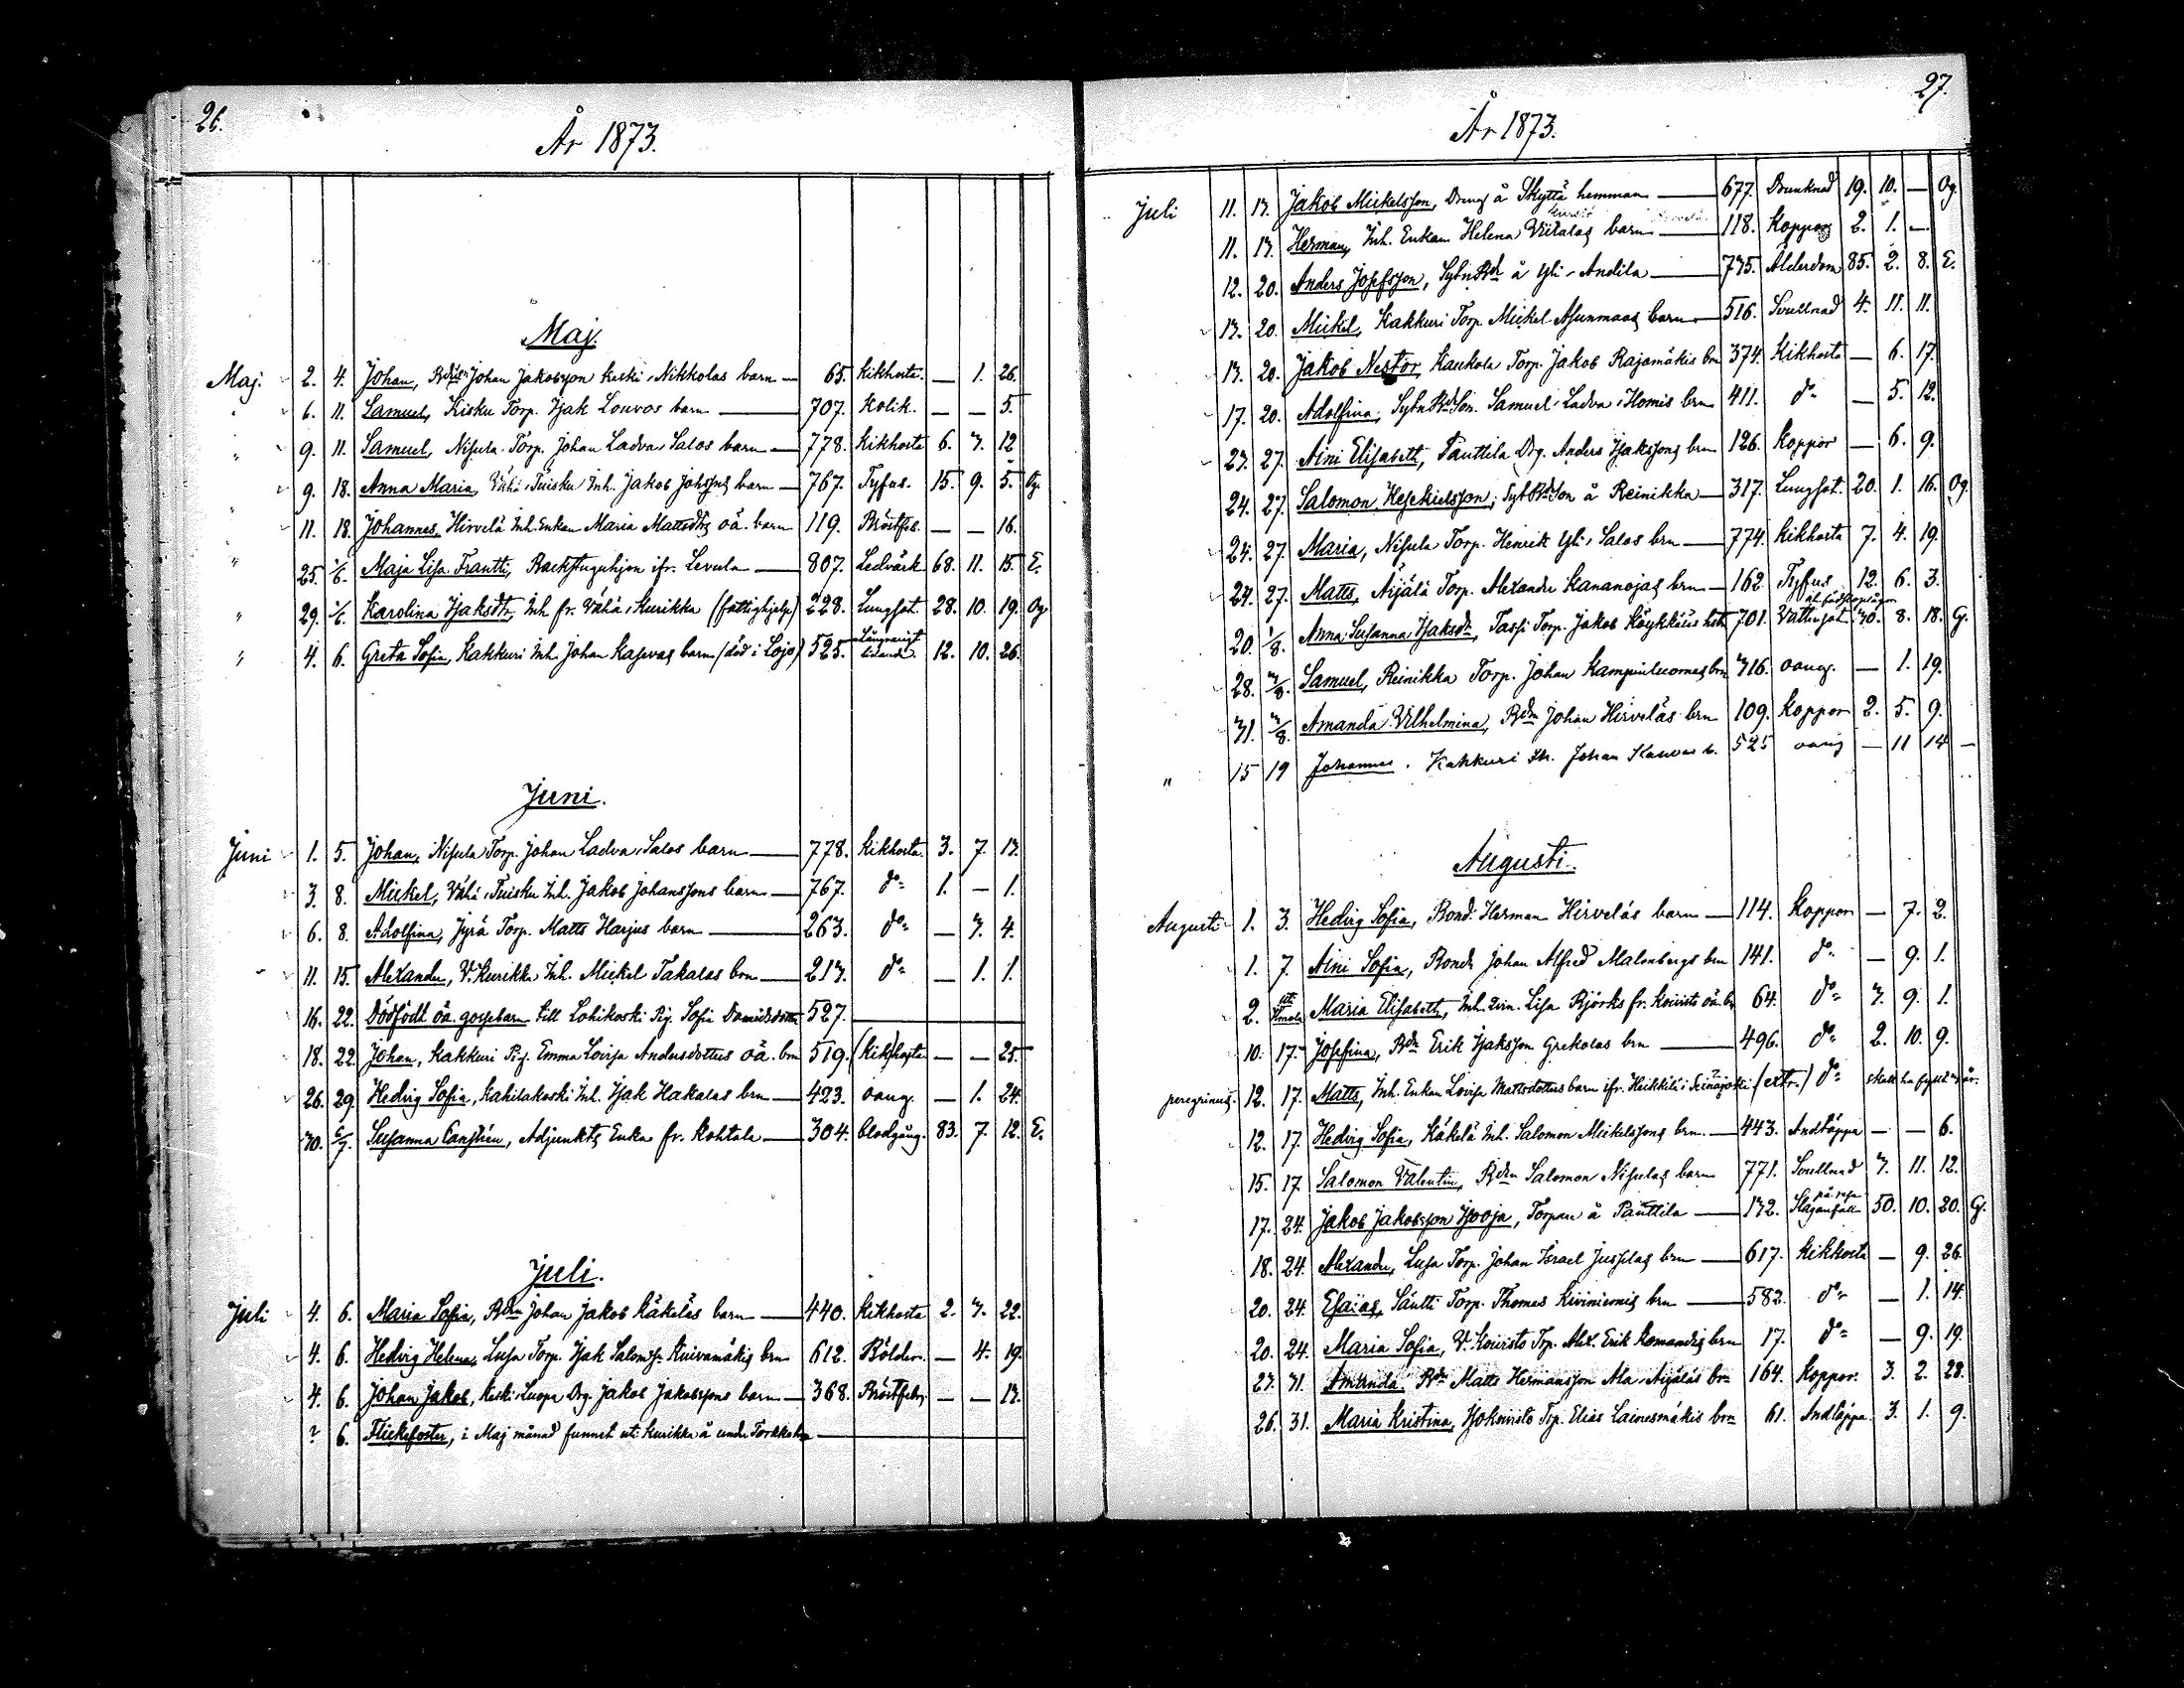 26.
År 1873.
Maj.
Maj. 2. 4. Johan, Johan Jakobsson Keski-Nikkolas barn — 65. Kikhosta. — 1. 26.
" 6. 11. Samuel, Kisku Torp. Isak Louvos barn — 707. Kolik. — — 5.
" 9. 11. Samuel, Nisula Torp. Johan Ladva-Salos barn — 778. Kikhosta 6. 3. 12
" 9. 18. Anna Maria, Vähä-Tuisku Inh. Jakob Johssons barn — 767. Tyfus. 15. 9. 5. Og.
" 11. 18. Johannes, Hirvelä Inh. Enkan Maria Mattsdtrs oä. barn 119. Bröstfeb. — — 16.
" 25. 1/6. Maja Lisa Frantti, Backstuguhjon ifr. Levula — 807. Ledvärk 68. 11. 15. E.
" 29. 1/6. Karolina Isaksdtr, Inh. fr. Vähä-Kurikka (fattighjelp) 228. Lungsot. 28. 10. 19. Og.
" 4. 6. Greta Sofia, Kakkuri Inh. Johan Kasvas barn (död i Lojo) 525. Långvarigt lidande. 12. 10. 26.
Juni.
Juni 1. 5. Johan, Nisula Torp. Johan Ladva-Salos barn — 778. Kikhosta 3. 7. 13.
3. 8. Mickel, Vähä-Tuisku Inh. Jakob Johanssons barn — 767. do 1. — 1.
6. 8. Adolfina, Jyrä Torp. Matts Harjus barn — 263. do — 3. 4.
11. 15. Alexander, V. Kurikka Inh. Mickel Takalas brn — 213. do — 1. 1.
16. 22. Dödfödt oä. gossebarn till Lohikoski Pig. Sofia Davidsdotter 527. —
18. 22. Johan, Kakkuri Pig. Emma Lovisa Andersdotters oä. brn 519. (Kik)hosta — — 25.
26. 29. Hedvig Sofia, Kahilakoski Inh. Isak Hakalas brn — 423. oang. — 1. 24.
30. 6/7. Susanna Canstrén, Adjunkts Enka fr. Kohtala — 304. blodgång. 83. 7. 12. E.
Juli.
Juli 4. 6. Maria Sofia, Bdn Johan Jakob Käkeläs barn — 440. Kikhosta 2. 3. 22.
4. 6. Hedvig Helena, Lusa Torp. Isak Saloms. Kuivamäkis brn 612. Bölder. — 4. 19.
4. 6. Johan Jakob, Keski-Luopa Drg. Jakob Jakobssons barn — 368. Bröstfeber — — 13.
? 6. Flickefoster, i Maj månad funnet uti Kurikka å under —
27.
År 1873.
Juli 11. 13. Jakob Mickelsson, Dreng å Skyttä hemman — 677. Drunknad 19. 10. — Og.
11. 13. Herman, Inh. Enkan Helena Viitalas barn — 118. Koppor 2. 1. —
12. 20. Anders Josefsson, SytnBdr å Yli-Andila — 735. Ålderdom 85. 2. 8. E.
13. 20. Mickel, Kakkuri Torp. Mickel Asunmaas barn — 516. Svullnad 4. 11. 11.
13. 20. Jakob Nestor, Kaukola Torp. Jakob Rajamäkis brn 374. Kikhosta — 6. 17.
17. 20. Adolfina, SytnBdSon. Samuel Ladva-Homis brn 411. do — 5. 12.
23. 27. Aini Elisabeth, Panttila Drg. Anders Isakssons brn 126. Koppor — 6. 9.
24. 27. Salomon Hesekielsson, SytnBdSon å Reinikka — 317. Lungsot. 20. 1. 16. Og.
24. 27. Maria, Nisula Torp. Henrik Yli-Salos brn — 774. Kikhosta 7. 4. 19.
24. 27. Matts, Äijälä Torp. Alexander Kananojas brn — 162. Tyfus 12. 6. 3.
20. 1/8. Anna Susanna Isaksdr, Tassi Torp. Jakob Köykkäis hst. 701. Vattusot 30. 8. 18. G.
28. 3/8. Samuel, Reinikka Torp. Johan Kampinluomas brn 316. oang. — 1. 19.
31. 3/8. Amanda Vilhelmina, Bdn Johan Hirveläs brn 109. Koppor 2. 5. 9.
" 15 19 Johannes, Kakkuri In. Johan Kasvas b. 525 oang — 11 14 —
Augusti.
Augusti 1. 3. Hedvig Sofia, Bond. Herman Hirveläs barn — 114. Koppor — 7. 2.
1. 7. Aini Sofia, Bonds Johan Alfred Malmbergs brn 141. do — 9. 1.
2. Maria Elisabeth, Inh. Lisa Björks fr. Koivisto oä. b. 64. do 3. 9. 1.
10. 17. Josefina, Bdn Erik Isaksson Grekolas brn — 496. do 2. 10. 9.
peregrinus. 12. 17. Matts, Inh. Enkan Lovisa Mattsdotters barn ifr. Heikkilä i Seinäjoki (extr.) do skall ha fyllt 3 år.
12. 17. Hedvig Sofia, Käkelä Inh. Salomon Mickelssons brn. — 443. Andtäppa — — 6.
15. 17. Salomon Valentin, Bdn Salomon Nisulas barn 771. Svullnad 3. 11. 12.
17. 24. Jakob Jakobsson Isooja, Torpare å Panttila — 132. Slaganfall på resa 50. 10. 20. G.
18. 24. Alexander, Lusa Torp. Johan Israel Jussilas brn — 617. Kikhosta — 9. 26.
20. 24. Esaias, Säntti Torp. Thomas Kiviniemis brn — 582. do — 1. 14.
20. 24. Maria Sofia, V. Koivisto Trp. Alex. Erik Komandis brn 17. do — 9. 19.
23. 31. Amanda, Bdr Matts Hermansson Ala-Äijäläs brn 164. Koppor. 3. 2. 28.
26. 31. Maria Kristina, Isokoivisto Trp. Elias Lainesmäkis brn 61. Andtäppa 3. 1. 9.